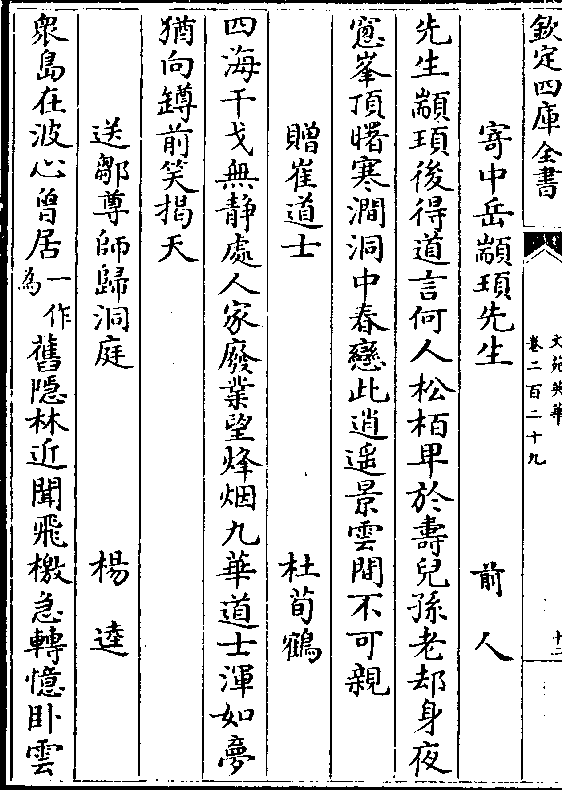 欽定四庫全書
文苑英華
卷二百二十九
十二
寄中岳顓頊先生 前人
先生顓頊後得道言何人松栢卑於壽兒孫老却身夜
窻峯頂曙寒澗洞中春戀此逍遥景雲間不可親
贈崔道士 杜荀鶴
四海干戈無静處人家廢業望烽烟九華道士渾如夢
猶向罇前笑揭天
送鄒尊師歸洞庭 楊逵
衆島在波心曾居一作為舊隱林近聞飛檄急轉憶卧雲